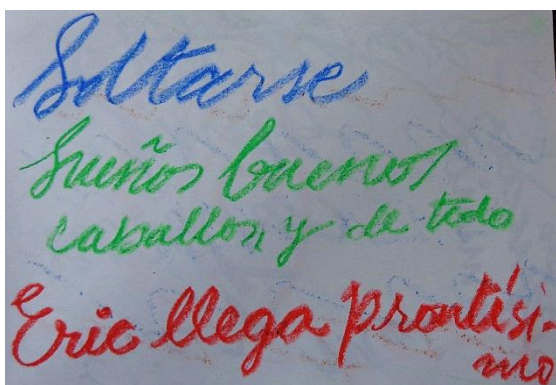 Soltarse
Sueños buenos
caballos, y de todo
Eric llega prontísi-
mo